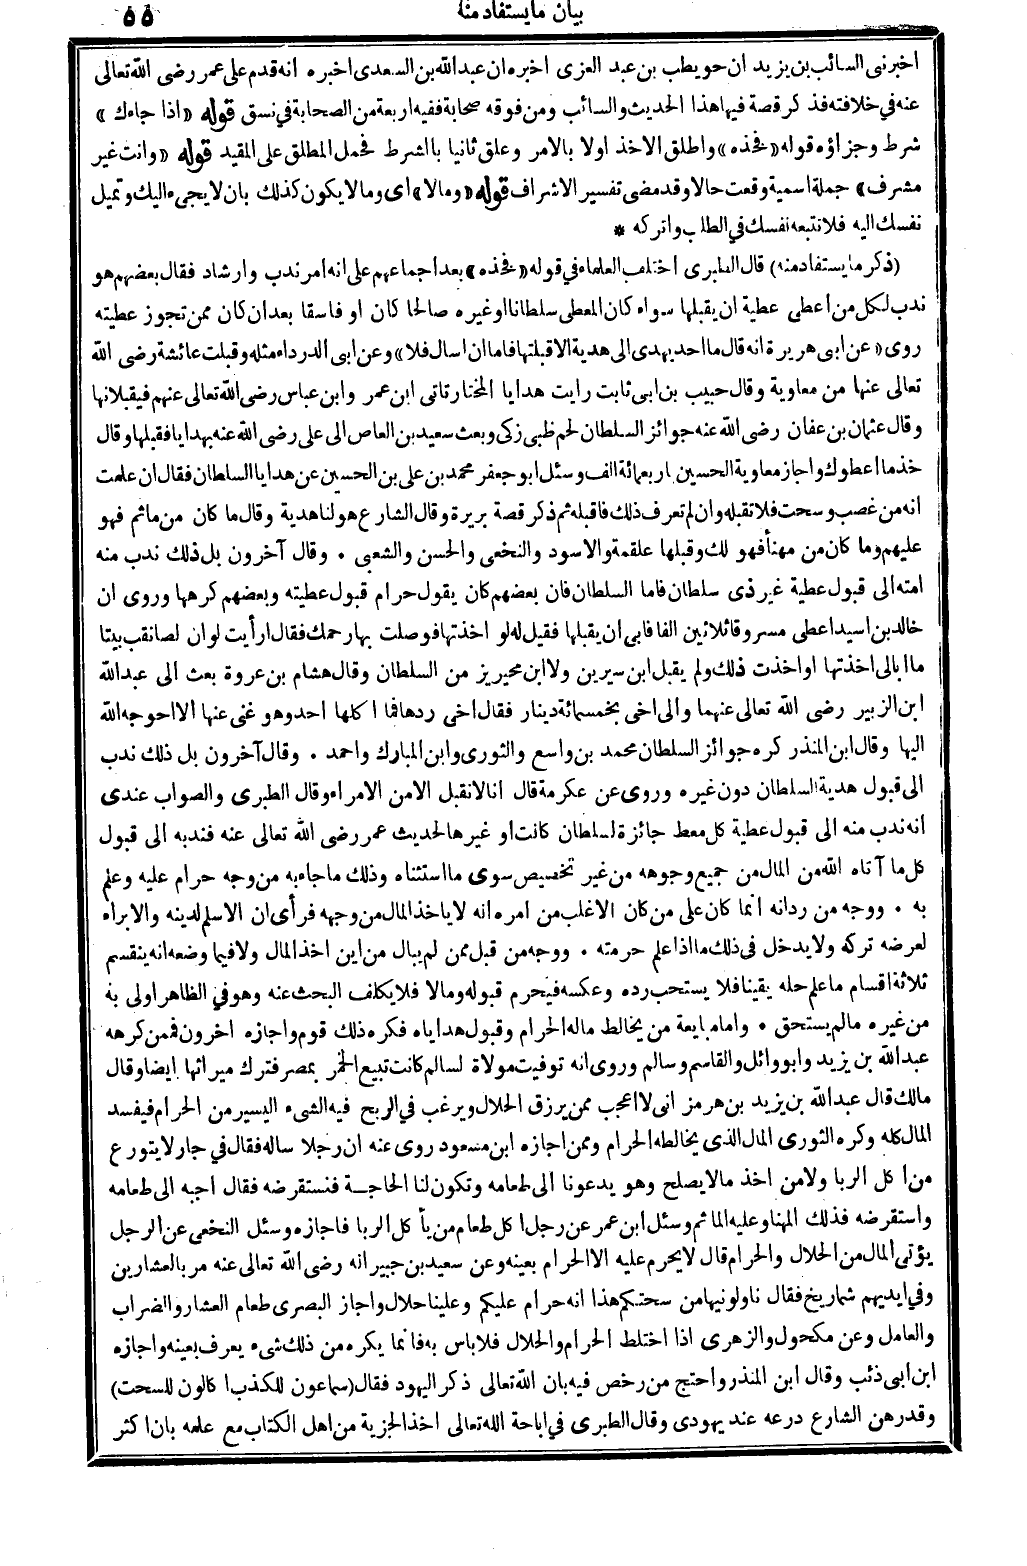 بيان ما يستفاد منه ٥٥
اخبرني السائب بن يزيد ان حويطب بن عبد العزى اخبره ان عبدالله بن السعدى اخبره انه قدم على عمر رضى الله تعالى
عنه في خلافته فذكر قصة فيها هذا الحديث والسائب ومن فوقه صحابة ففيه اربعة من الصحابة في نسق قوله «اذا جاءك»
شرط وجزاؤه قوله «فخذه» واطلق الاخذ اولا بالامر وعلق ثانيا بالشرط فحمل المطلق على المقيد قوله «وانت غير
مشرف» جملة اسمية وقعت حالا وقد مضى تفسير الاشراف قوله «ومالا» اى وما لا يكون كذلك بان لا يجيء اليك وتميل
نفسك اليه فلا تتبعه نفسك في الطلب واتركه *
(ذكر ما يستفاد منه) قال الطبرى اختلف العلماء في قوله «فخذه» بعد اجماعهم على انه امر ندب وارشاد فقال بعضهم هو
ندب لكل من أعطى عطية ان يقبلها سواء كان المعطى سلطانا او غيره صالحا كان او فاسقا بعد ان كان ممن تجوز عطيته
روى «عن ابى هريرة انه قال ما احد يهدى الى هدية الا قبلتها فاما ان اسال فلا» وعن ابى الدرداء مثله وقبلت عائشة رضى الله
تعالى عنها من معاوية وقال حبيب بن ابى ثابت رايت هدايا المختار تاتى ابن عمر وابن عباس رضى الله تعالى عنهم فيقبلانها
وقال عثمان بن عفان رضى الله عنه جوائز السلطان لحم ظبى زكى وبعث سعيد بن العاص الى على رضى الله عنه بهدايا فقبلها وقال
خذ ما اعطوك واجاز معاوية الحسين اربعمائة الف وسئل ابو جعفر محمد بن على بن الحسين عن هدايا السلطان فقال ان علمت
انه من غصب وسحت فلا تقبله وان لم تعرف ذلك فاقبله ثم ذكر قصة بريرة وقال الشارع هو لنا هدية وقال ما كان من مأثم فهو
عليهم وما كان من مهنأ فهو لك وقبلها علقمة والاسود والنخعى والحسن والشعبى . وقال آخرون بل ذلك ندب منه
امته الى قبول عطية غير ذى سلطان فاما السلطان فان بعضهم كان يقول حرام قبول عطيته وبعضهم كرهها وروى ان
خالد بن اسيد اعطى مسروقا ثلاثين الفا فابى ان يقبلها فقيل له لو اخذتها فوصلت بها رحمك فقال ارأيت لو ان لصا نقب بيتا
ما ابالى اخذتها او اخذت ذلك ولم يقبل ابن سيرين ولا ابن محيريز من السلطان وقال هشام بن عروة بعث الى عبدالله
ابن الزبير رضى الله تعالى عنهما والى اخى بخمسمائة دينار فقال اخى ردها فما اكلها احد وهو غنى عنها الا احوجه الله
اليها وقال ابن المنذر كره جوائز السلطان محمد بن واسع والثورى وابن المبارك واحمد . وقال آخرون بل ذلك ندب
الى قبول هدية السلطان دون غيره وروى عن عكرمة قال انا لا نقبل الا من الامراء وقال الطبرى والصواب عندى
انه ندب منه الى قبول عطية كل معط جائزة لسلطان كانت او غيرها لحديث عمر رضى الله تعالى عنه فندبه الى قبول
كل ما آتاه الله من المال من جميع وجوهه من غير تخصيص سوى ما استثناه وذلك ما جاء به من وجه حرام عليه وعلم
به . ووجه من رد انه انما كان على من كان الاغلب من امره انه لا ياخذ المال من وجهه فرأى ان الاسلم لدينه والابراء
لعرضه تركه ولا يدخل في ذلك ما اذا علم حرمته . ووجه من قبل ممن لم يبال من اين اخذ المال ولا فيما وضعه انه ينقسم
ثلاثة اقسام ما علم حله يقينا فلا يستحب رده وعكسه فيحرم قبوله ومالا فلا يكلف البحث عنه وهو في الظاهر اولى به
من غيره ما لم يستحق . واما مبايعة من يخالط ماله الحرام وقبول هداياه فكره ذلك قوم واجازه اخرون فمن كرهه
عبدالله بن يزيد وابو وائل والقاسم وسالم وروى انه توفيت مولاة لسالم كانت تبيع الخمر بمصر فترك ميراثها ايضا وقال
مالك قال عبدالله بن يزيد بن هرمز انى لا اعجب ممن يرزق الحلال ويرغب في الربح فيه الشيء اليسير من الحرام فيفسد
المال كله وكره الثورى المال الذى يخالطه الحرام وممن اجازه ابن مسعود روى عنه ان رجلا ساله فقال في جار لا يتورع
من اكل الربا ولا من اخذ مالا يصلح وهو يدعونا الى طعامه وتكون لنا الحاجة فنستقرضه فقال اجبه الى طعامه
واستقرضه فذلك المهنا وعليه الماثم وسئل ابن عمر عن رجل اكل طعام من يأكل الربا فاجازه وسئل النخعى عن الرجل
يؤتى المال من الحلال والحرام قال لا يحرم عليه الا الحرام بعينه وعن سعيد بن جبير انه رضى الله تعالى عنه مر بالعشارين
وفي ايديهم شماريخ فقال ناولونيها من سحتكم هذا انه حرام عليكم وعلينا حلال واجاز البصرى طعام العشار والضراب
والعامل وعن مكحول والزهرى اذا اختلط الحرام والحلال فلا باس به فانما يكره من ذلك شيء يعرف بعينه واجازه
ابن ابى ذئب وقال ابن المنذر واحتج من رخص فيه بان الله تعالى ذكر اليهود فقال (سماعون للكذب اكالون للسحت)
وقد رهن الشارع درعه عند يهودى وقال الطبرى في اباحة الله تعالى اخذ الجزية من اهل الكتاب مع علمه بان اكثر